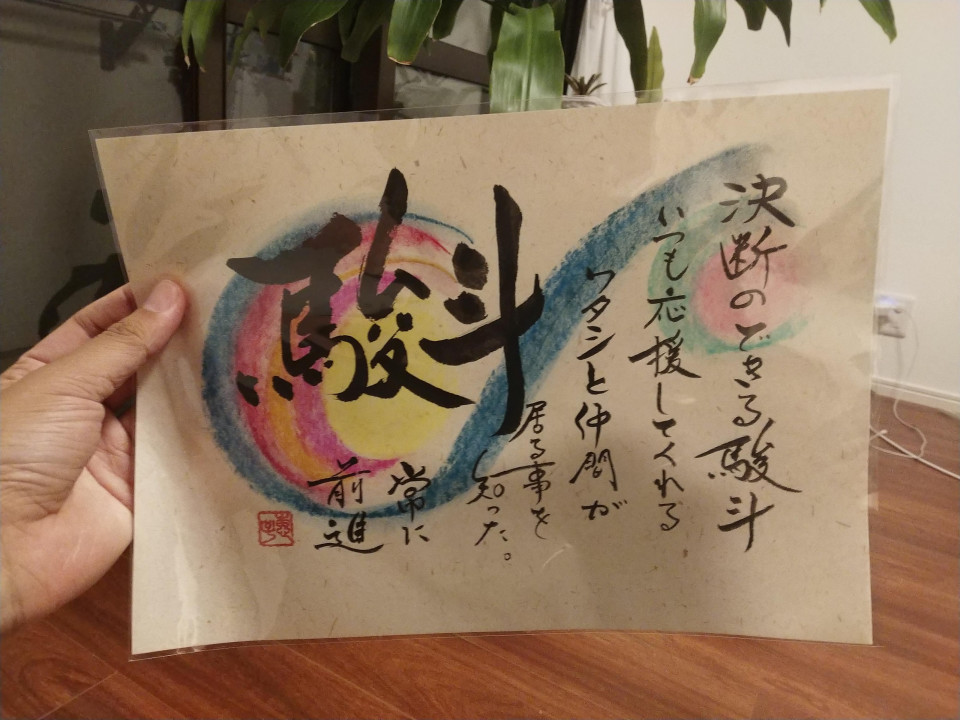 駿斗
決断のできる駿斗
いつも応援してくれる
ワタシと仲間が
居る事を
知った。
常に
前進